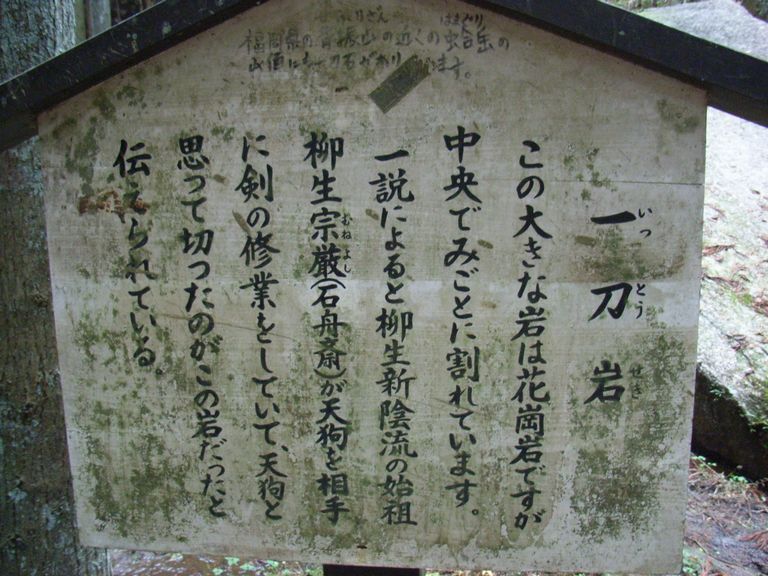 福岡県の背振山の近くの蛤岳の
山頂にも一刀石があります。
はまぐり
一刀岩
いっとうせき
この大きな岩は花崗岩ですが
中央でみごとに割れています。
一説によると柳生新陰流の始祖
柳生宗厳(石舟斎)が天狗を相手
むねよし
に剣の修業をしていて、天狗と
思って切つたのがこの岩だつたと
伝えられている。